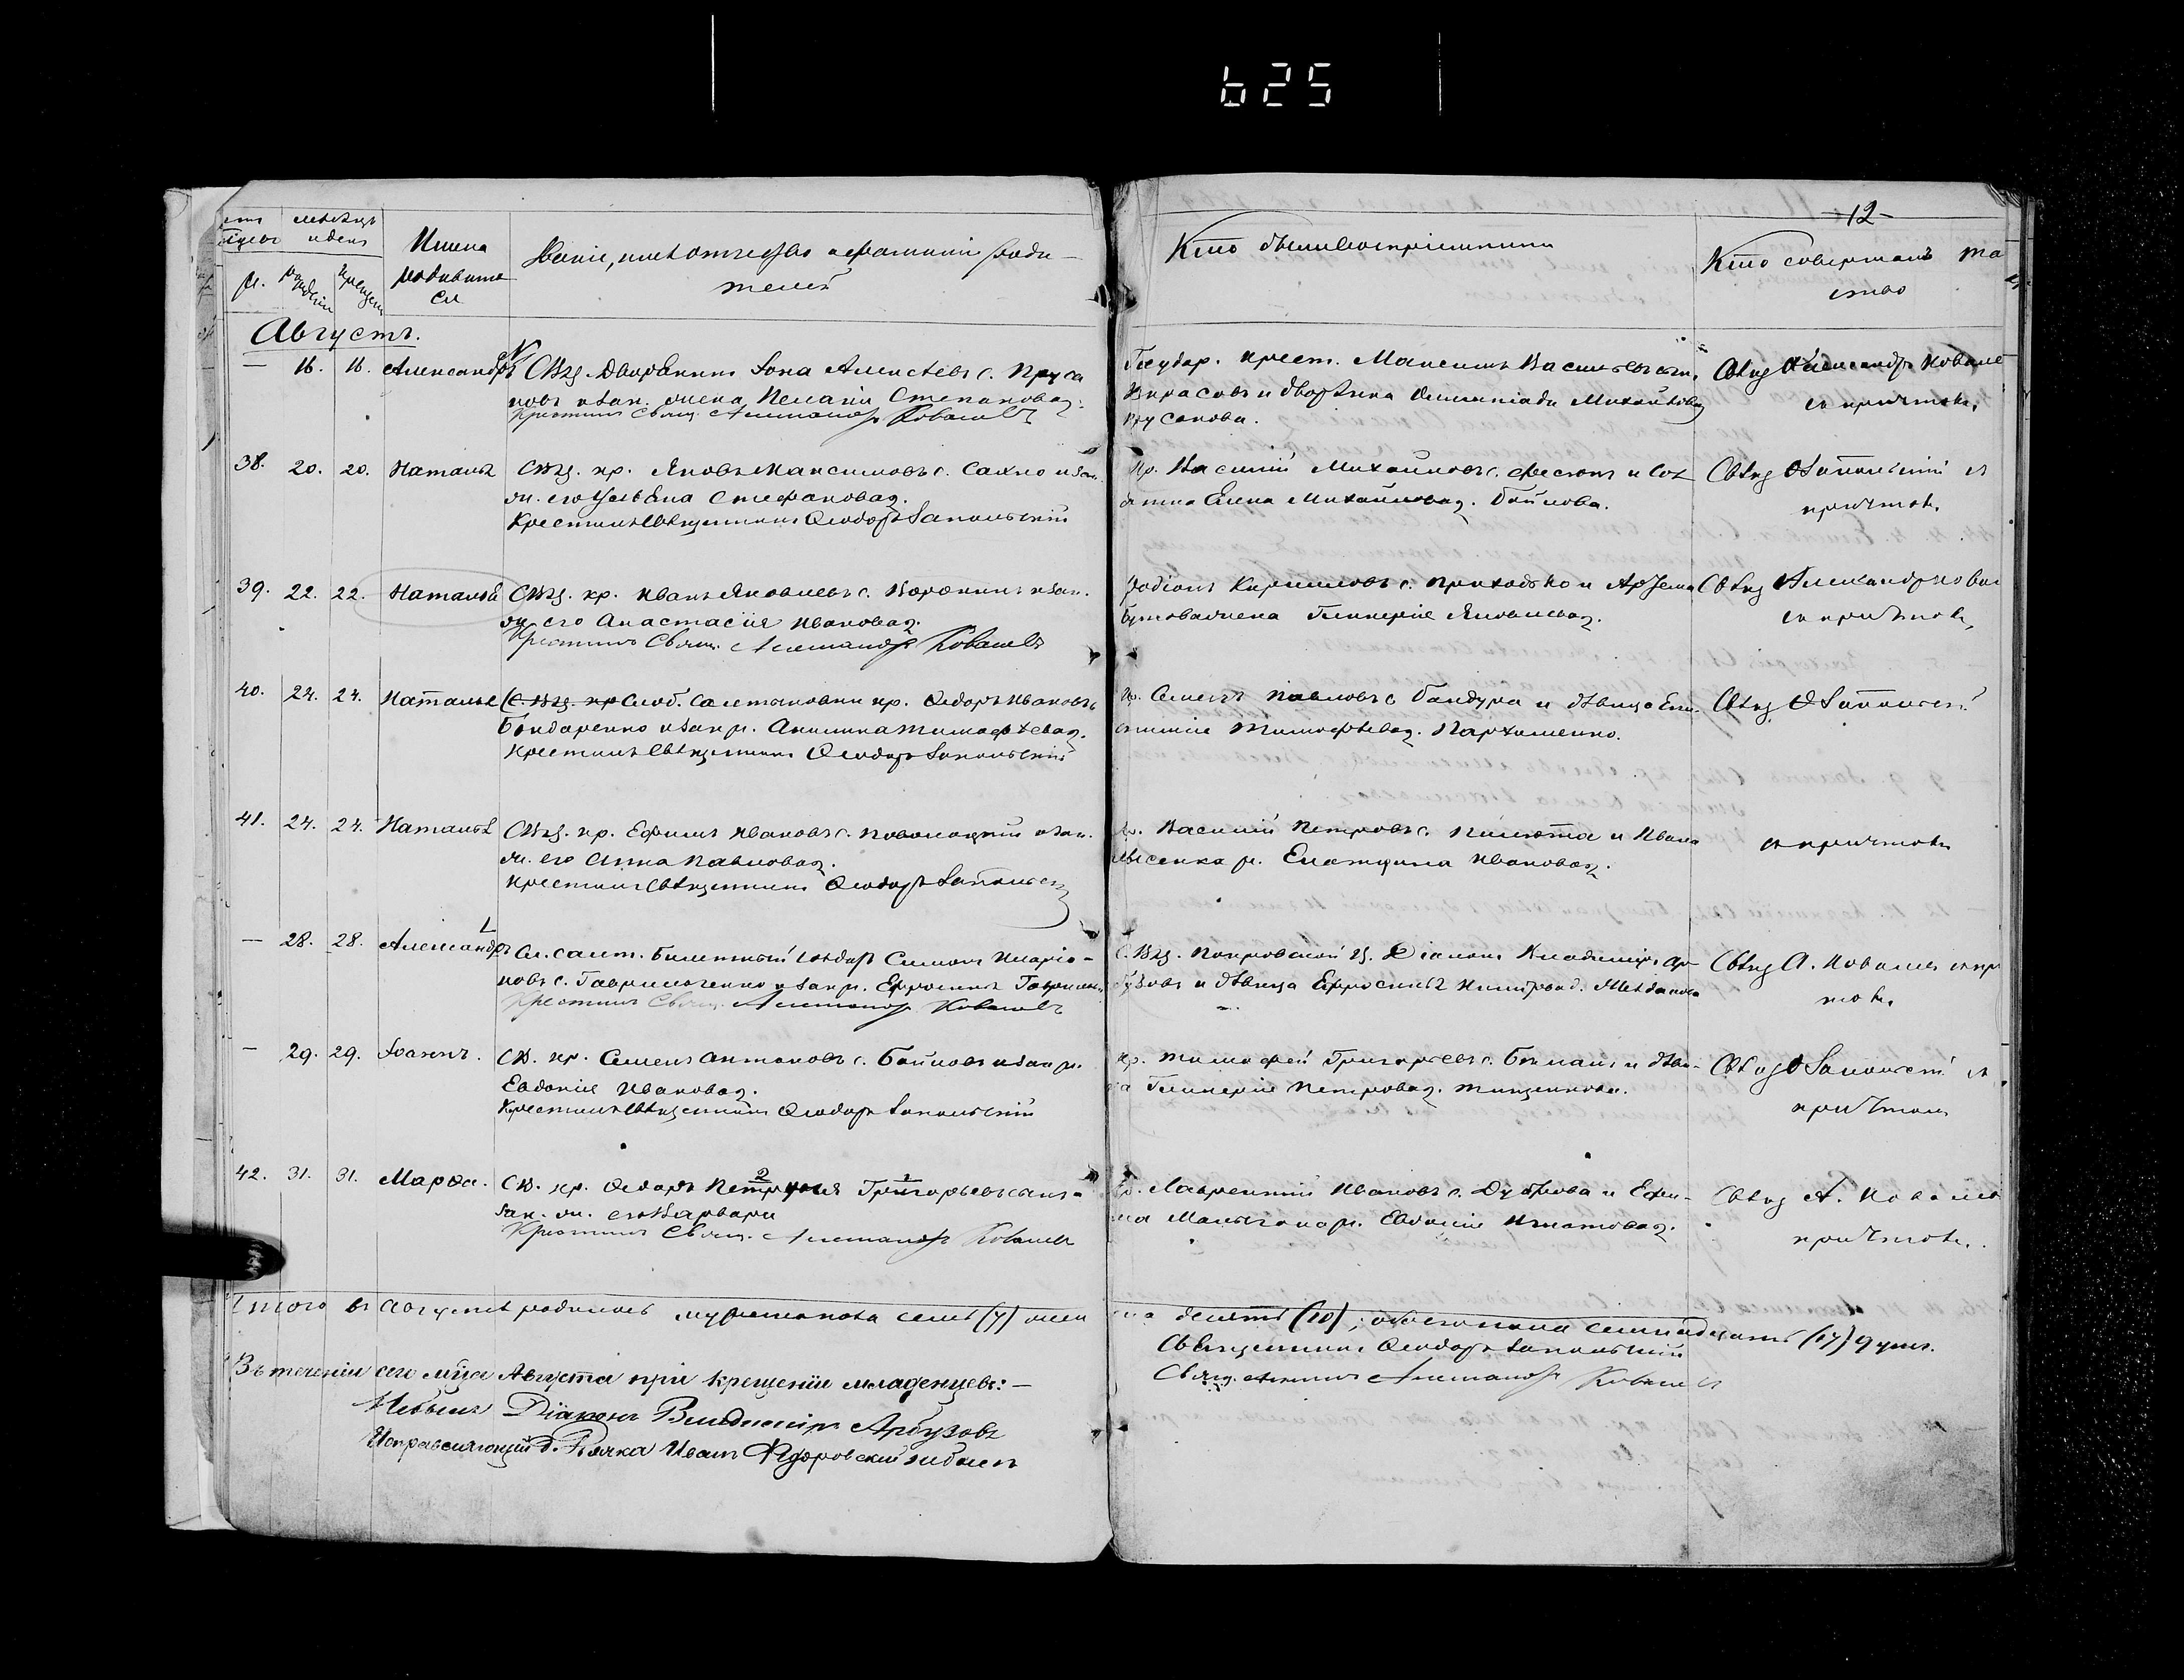 625
-12-
мѣсяцъ
и день
Имена
родивши
ся
Званіе, имя отчество и фамилія роди-
телей
Кто были воспріемники
Кто совершалъ та
ство
Августъ.
— 16. 16. Александръ
Дворянинъ Іона Алексѣевъ с. Пруса
новъ и зак. жена Пелагія Степановад.
Крестилъ Свящ. Александръ Ковалевъ
Государ. крест. Максимъ Васильевъ сынъ
и дворянка Олимпіада Михайловад
Прусанова.
Свящ Александръ Ковале
съ причтомъ.
38. 20. 20. Наталія
СВц. кр. Яковъ Максимовъ с. Сахно и зак.
ж. его Ульяна Стефановад.
Крестилъ Священникъ Ѳеодоръ Запольскій
Кр. Василій Михайловъ с. Фесюнъ и Сол
датка Елена Михайловад. Бойлова.
Свящ Ѳ Запольскій съ
причтомъ.
39. 22. 22. Наталія
СВц. кр. Иванъ Яковлевъ с. Воронинъ и зак.
ж. его Анастасія Ивановад.
Крестилъ Свящ. Александръ Ковалевъ
Родіонъ Кирилловъ с. Приходько и Артема
Гликерія Яковлевад.
Свящ Александръ Ковал
съ причтомъ.
40. 24. 24. Наталія
Слоб. Салтыковки кр. Ѳедоръ Ивановъ с
Бондаренко и зак ж. Акилина Тимофѣевад.
Крестилъ Священникъ Ѳеодоръ Запольскій
Кр. Семенъ Павловъ с Бандура и дѣвица Ев
Тимофѣевад. Пархоменко.
Свящ. Ѳ Запольскій
41. 24. 24. Наталія
СВц. кр. Ефимъ Ивановъ с. Поволоцкій и зак.
ж. его Анна Павловад.
Крестилъ Священникъ Ѳеодоръ Запольскій
Кр. Василій Петровъ с. Пилюта и Ивана
Лысенка ж. Екатерина Ивановад.
съ причтомъ
— 28. 28. Александръ
Сл. Салт. Билетный солдатъ Симонъ Иларіо-
новъ с. Гавриленко и зак ж. Евфросинія Гаврилов
Крестилъ Свящ. Александръ Ковалевъ
С. Вц. Покровской Ц. Діаконъ Владиміръ Ар
бузовъ и дѣвица Евфросинія
Свящ А. Ковалевъ съ при
томъ.
— 29. 29. Іоаннъ.
СВ. кр. Семенъ Антоновъ с. Бойловъ и зак ж.
Евдокія Ивановад.
Крестилъ Священникъ Ѳеодоръ Запольскій
Кр. Тимофей Григорьевъ с. и дѣви-
ца Гликерія Петровад. Тищенкова.
Свящ Ѳ Запольскій съ
причтомъ
42. 31. 31. Марѳа.
СВ. кр. Ѳедоръ Григорьевъ сынъ
зак. ж. его Варвара
Крестилъ Свящ. Александръ Ковалевъ
Кр. Лаврентій Ивановъ с. Дуброва и Ефи-
ма ж. Евдокія Игнатовад.
Свящ А. Ковалев
причтомъ.
Итого въ Августѣ родилось мужеска пола семь (7) жен
ска десять (10); обоего пола семнадцать (17) душъ.
Священникъ Ѳеодоръ Запольскій
Свящ. Александръ Ковалевъ
Въ теченіи сего мѣца Августа при крещеніи младенцевъ:—
Небылъ Діаконъ Владиміръ Арбузовъ
Исправляющій д. Дьячка Иванъ Ѳедоровскій небылъ